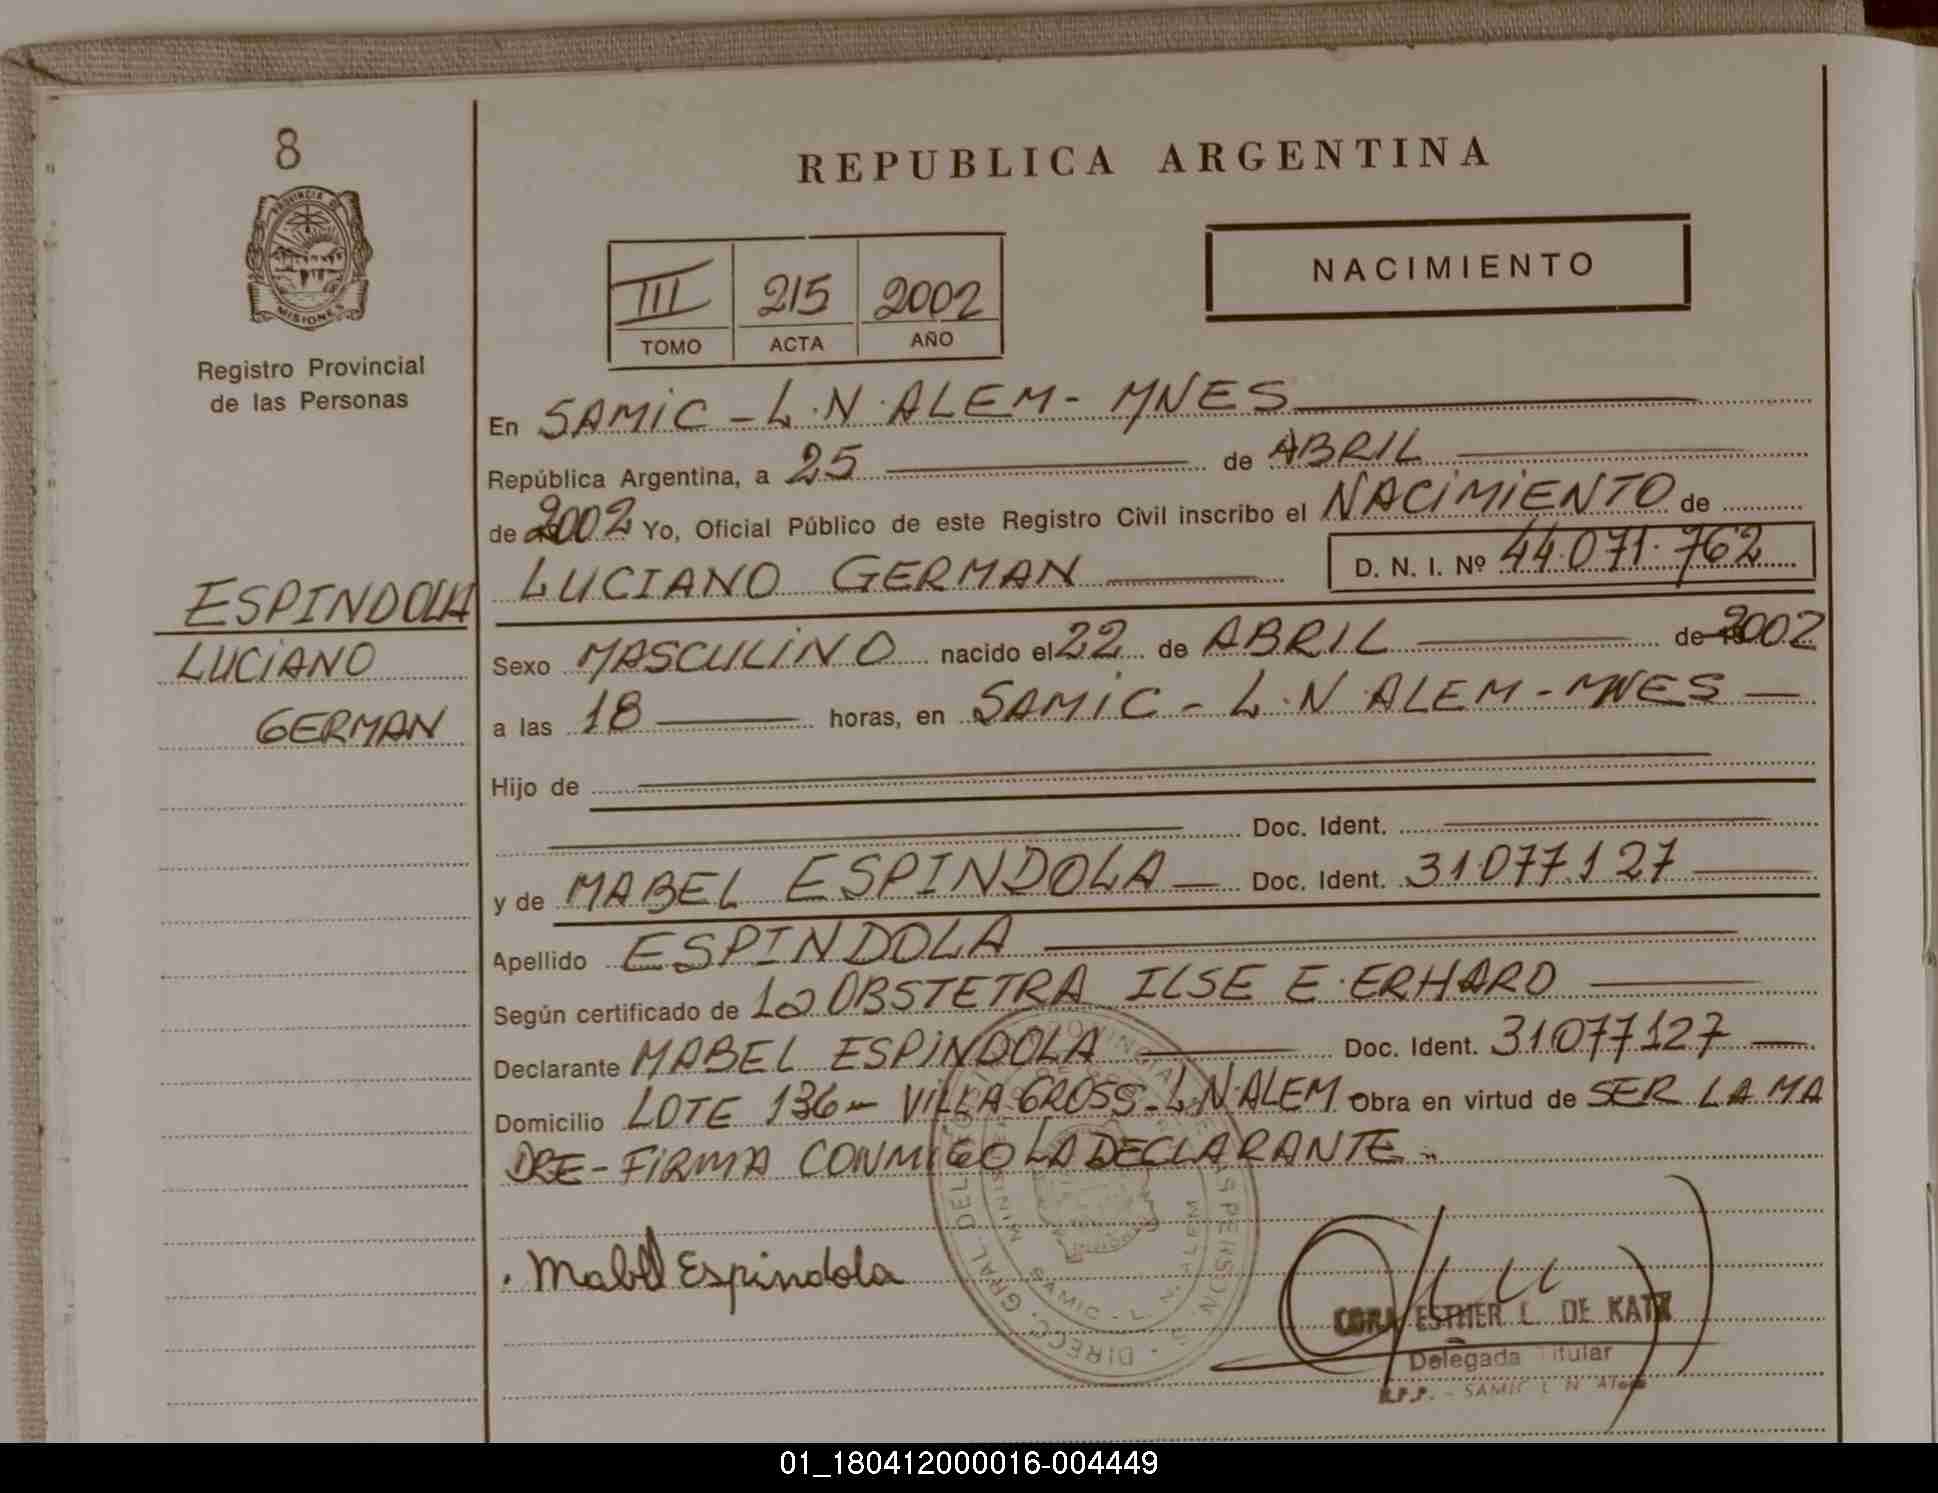 8
PROVINCIA DE
MISIONES
Registro Provincial
de las Personas
ESPINDOLA
LUCIANO
GERMAN
REPUBLICA ARGENTINA
NACIMIENTO
III 215 2002
TOMO ACTA AÑO
En SAMIC - L.N. ALEM - MNES
República Argentina, a 25 de ABRIL
de 2002 Yo, Oficial Público de este Registro Civil inscribo el NACIMIENTO de
LUCIANO GERMAN D. N. I. Nº 44.071.762
Sexo MASCULINO nacido el 22 de ABRIL de 2002
a las 18 horas, en SAMIC - L.N. ALEM - MNES
Hijo de
Doc. Ident.
y de MABEL ESPINDOLA Doc. Ident. 31.077.127
Apellido ESPINDOLA
Según certificado de La OBSTETRA ILSE E. ERHARD
Declarante MABEL ESPINDOLA Doc. Ident. 31.077.127
Domicilio LOTE 136 - VILLA GROSS - L.N. ALEM Obra en virtud de SER LA MA
DRE - FIRMA CONMIGO LA DECLARANTE
Mabel Espindola
DIRECC. GRAL. DEL
SAMIC - L. N. ALEM
CORA ESTHER L. DE KATZ
Delegada Titular
R.P.P. - SAMIC L N Alem
01_180412000016-004449